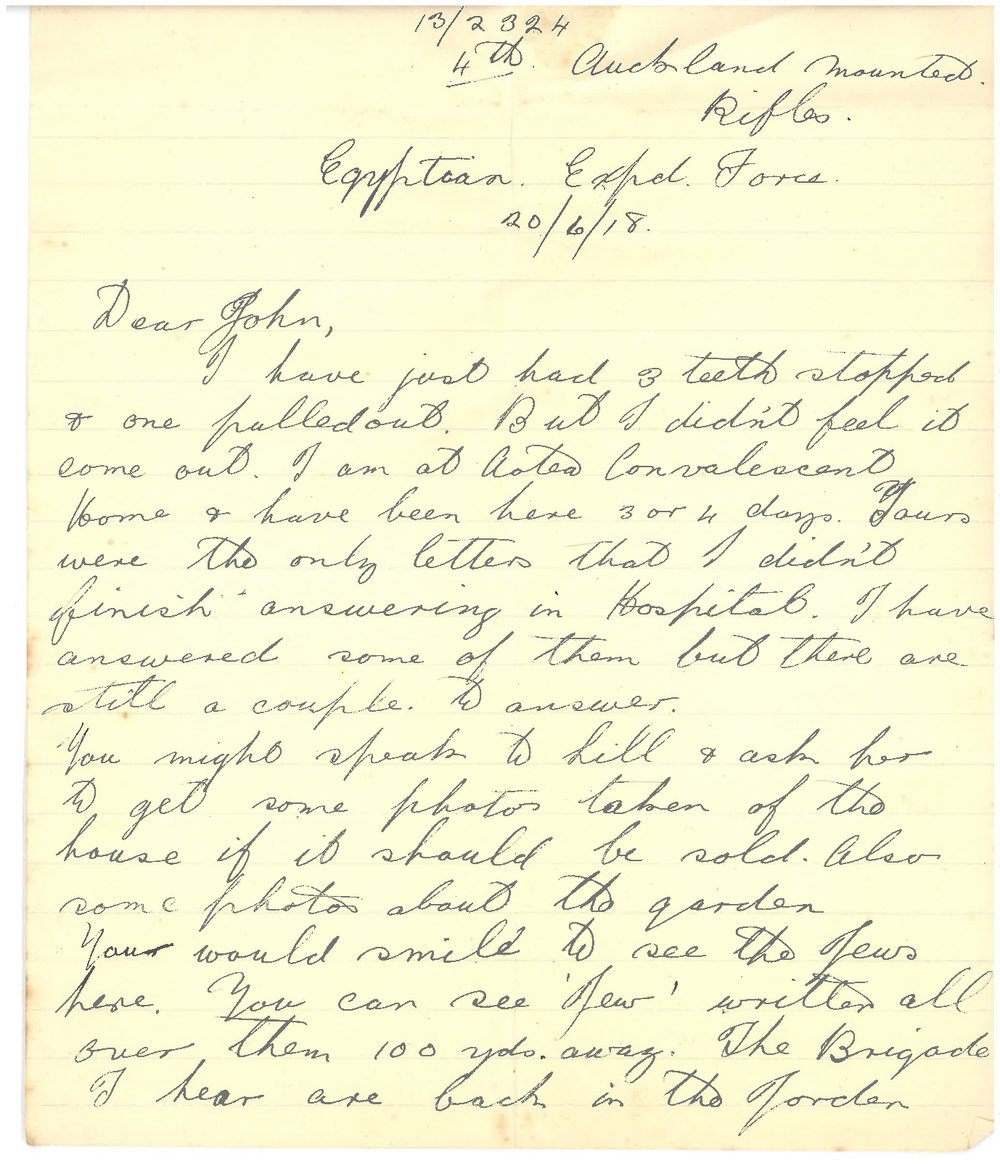 13/2324
4th. Auckland Mounted.
Rifles.
Egyptian. Expd. Force.
20/6/18.
Dear John,
I have just had 3 teeth stopped
& one pulled out. But I didn't feel it
come out. I am at Aotea Convalescent
Home & have been here 3 or 4 days. Yours
were the only letters that I didn't
finish answering in Hospital. I have
answered some of them but there are
still a couple. to answer.
You might speak to Lill & ask her
to get some photos taken of the
house if it should be sold. Also
some photos about the garden
Your would smile to see the Jews
here. You can see 'Jew' written all
over them 100 yds. away. The Brigade
I hear are back in the Jorden